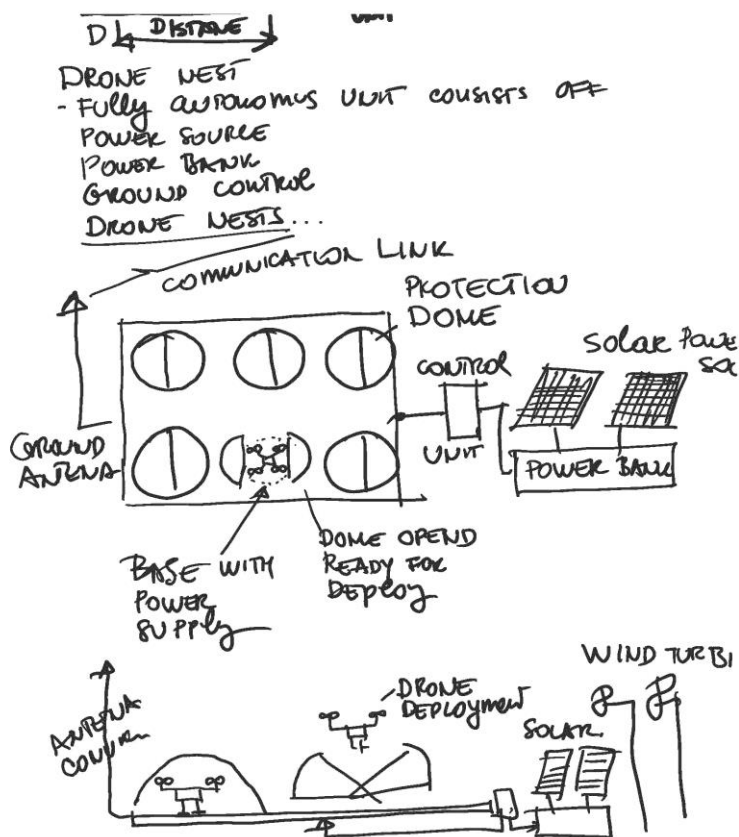 D DISTANE
DRONE NEST
- FULLY AUTONOMUS UNIT CONSISTS OFF
POWER SOURCE
POWER BANK
GROUND CONTROL
DRONE NESTS...
COMUNICATION LINK
PROTECTION
DOME
SOLAR POWE
CONTROL
UNIT
POWER BANK
GROUND
ANTENA
BASE WITH
POWER
SUPPLY
DOME OPEND
READY FOR
DEPLOY
WIND TURBI
DRONE
DEPLOYMENT
SOLAR
ANTENA